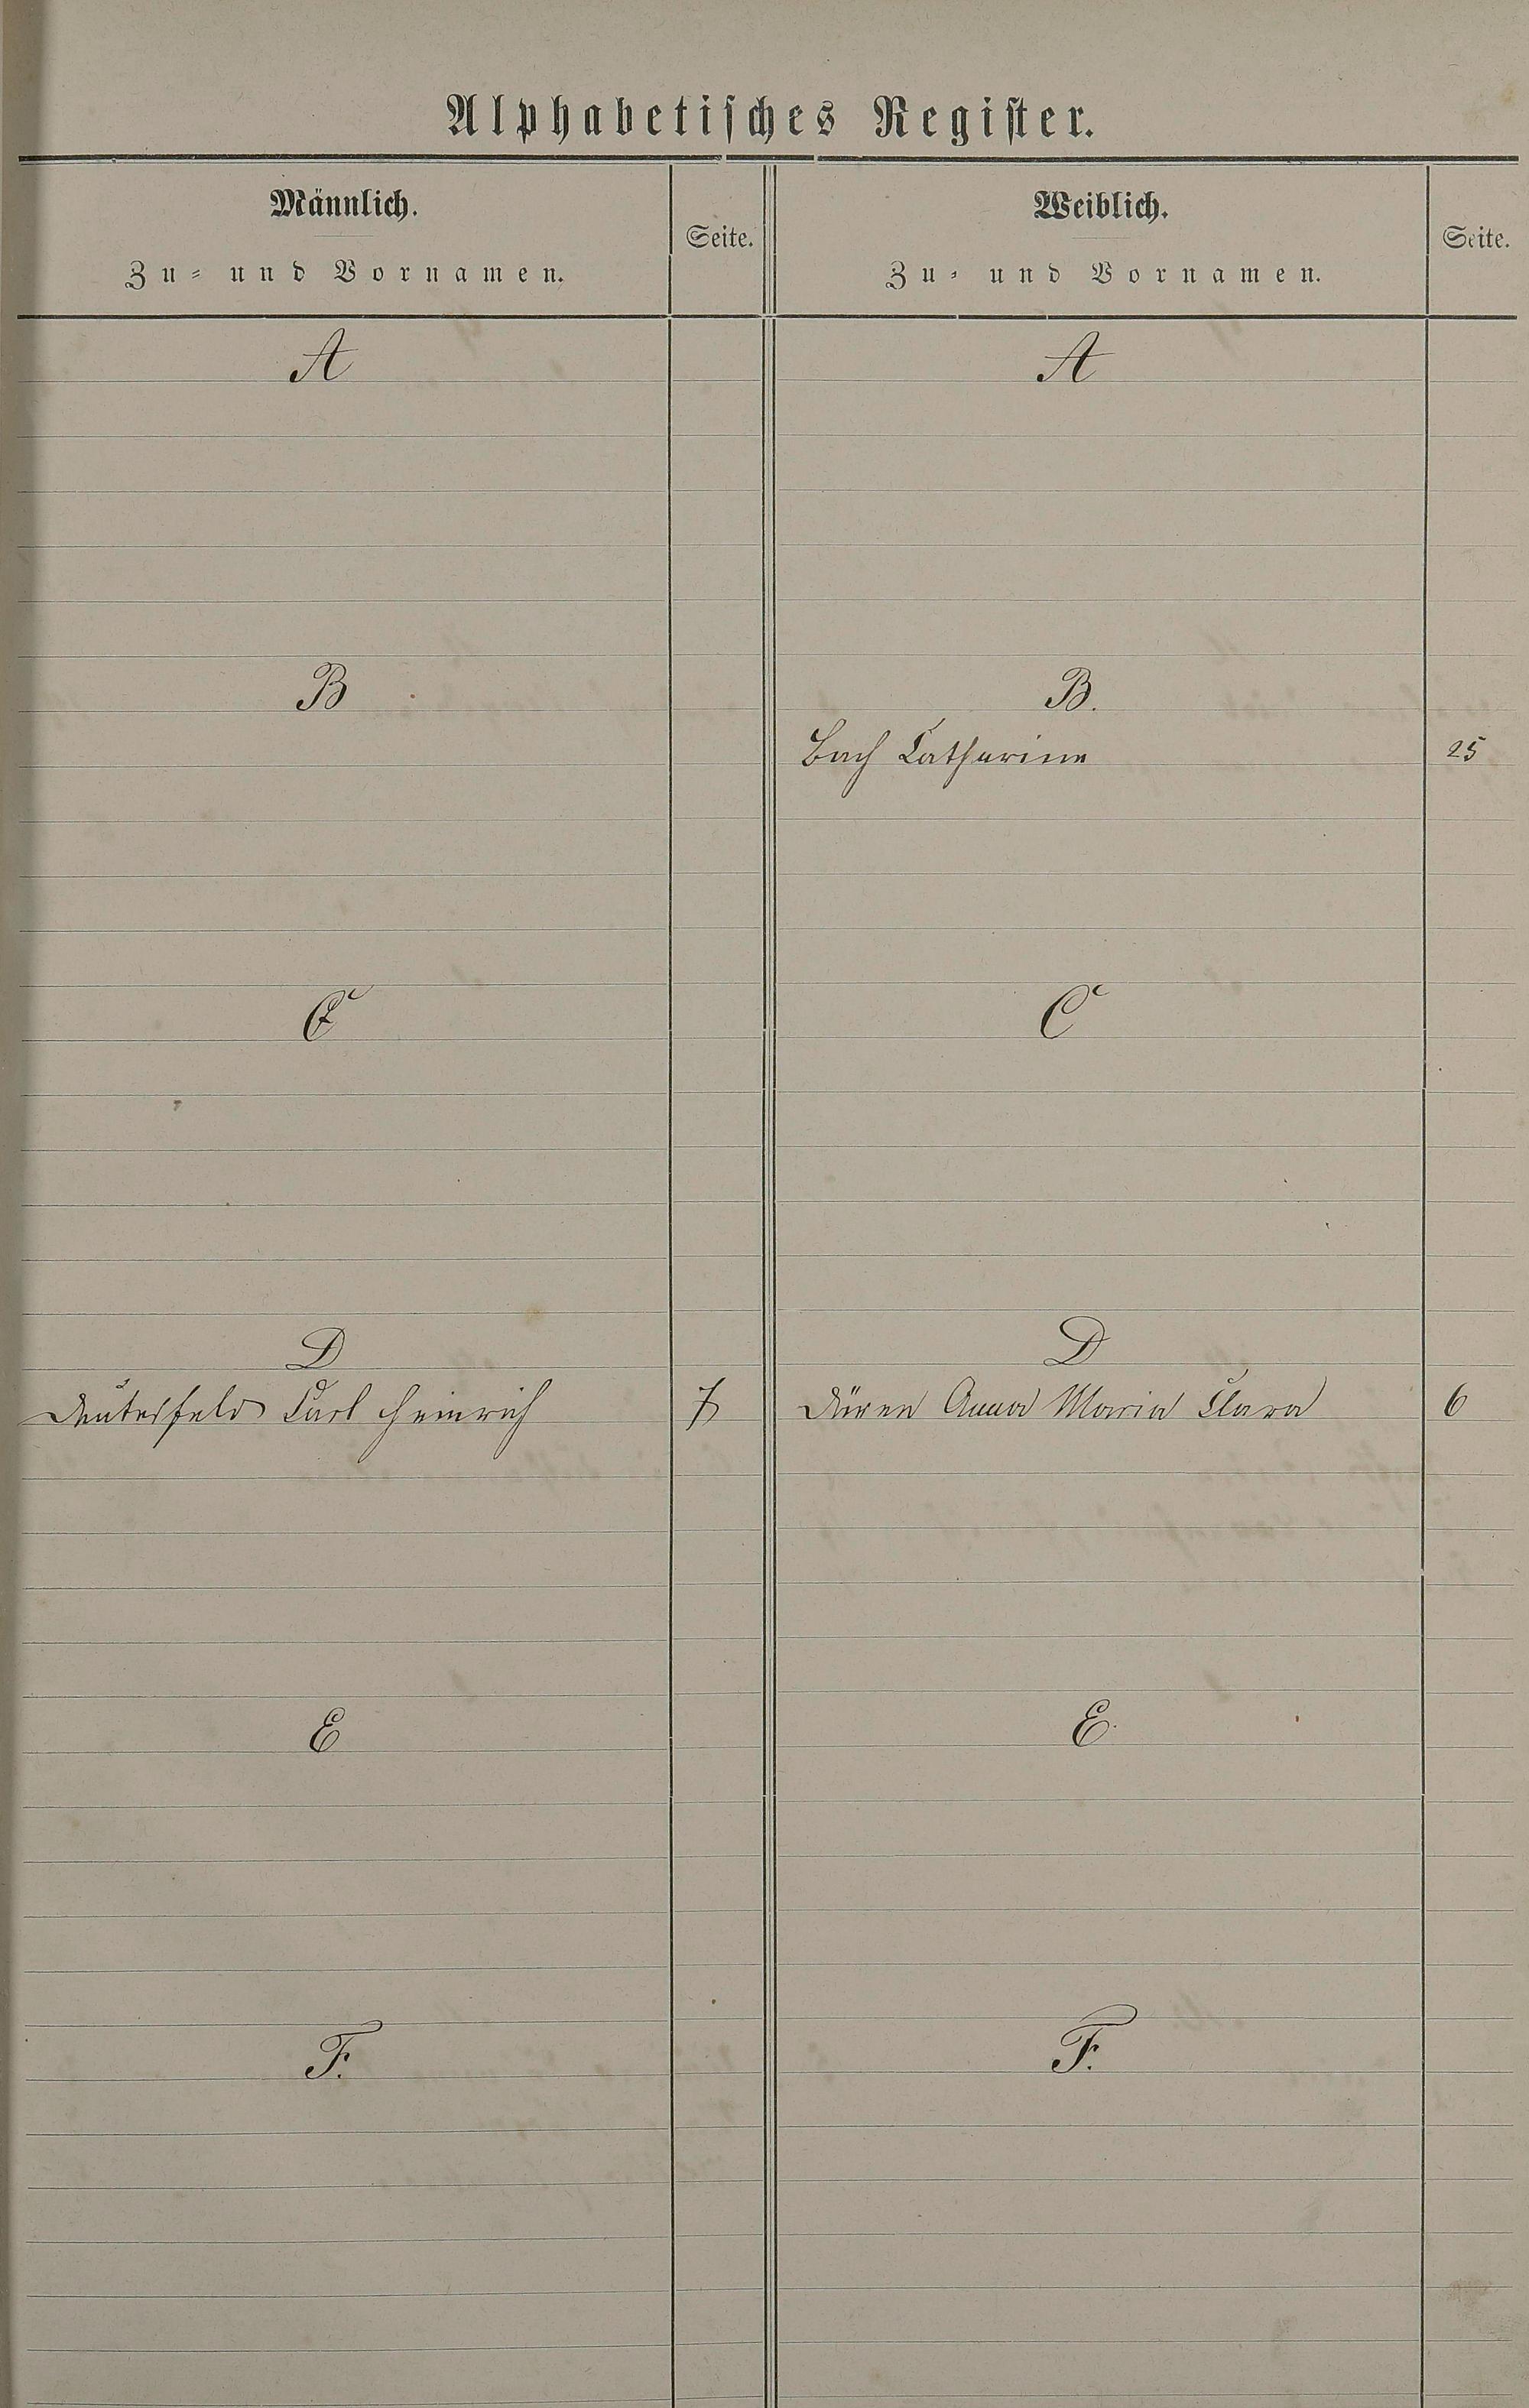 Alphabetisches Register.
Männlich.
Zu- und Vornamen.
Seite.
Weiblich.
Zu- und Vornamen.
Seite.
A
A
B
B.
Bach Catharina
25
C
C
D
D
Carl Heinrich
7
Düren Anna Maria Clara
6
E
E.
F.
F.